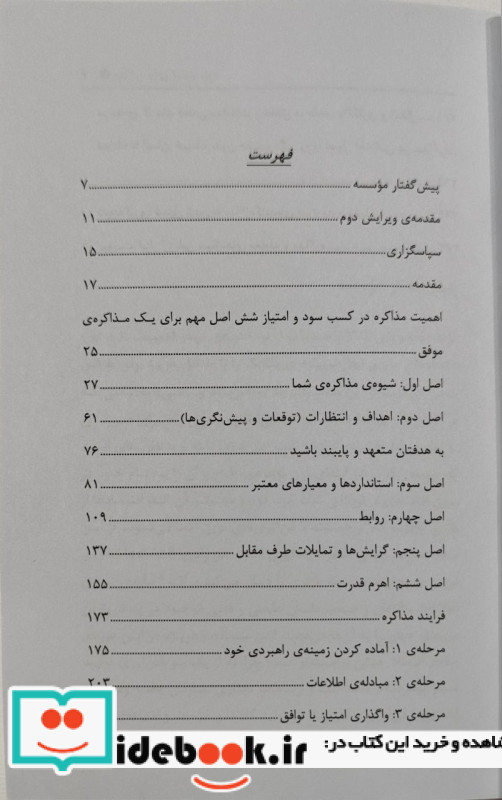 فهرست
پیش‌گفتار مؤسسه ........ ۷
مقدمه‌ی ویرایش دوم ........ ۱۱
سپاسگزاری ........ ۱۵
مقدمه ........ ۱۷
اهمیت مذاکره در کسب سود و امتیاز شش اصل مهم برای یـک مـذاکره‌ی
موفق ........ ۲۵
اصل اول: شیوه‌ی مذاکره‌ی شما ........ ۲۷
اصل دوم: اهداف و انتظارات (توقعات و پیش‌نگری‌ها) ........ ۶۱
به هدفتان متعهد و پایبند باشید ........ ۷۶
اصل سوم: استانداردها و معیارهای معتبر ........ ۸۱
اصل چهارم: روابط ........ ۱۰۹
اصل پنجم: گرایش‌ها و تمایلات طرف مقابل ........ ۱۳۷
اصل ششم: اهرم قدرت ........ ۱۵۵
فرایند مذاکره ........ ۱۷۳
مرحله‌ی ۱: آماده کردن زمینه‌ی راهبردی خود ........ ۱۷۵
مرحله‌ی ۲: مبادله‌ی اطلاعات ........ ۲۰۳
مرحله‌ی ۳: واگذاری امتیاز یا توافق ........
شاهده و خرید این کتاب در:
idebook.ir